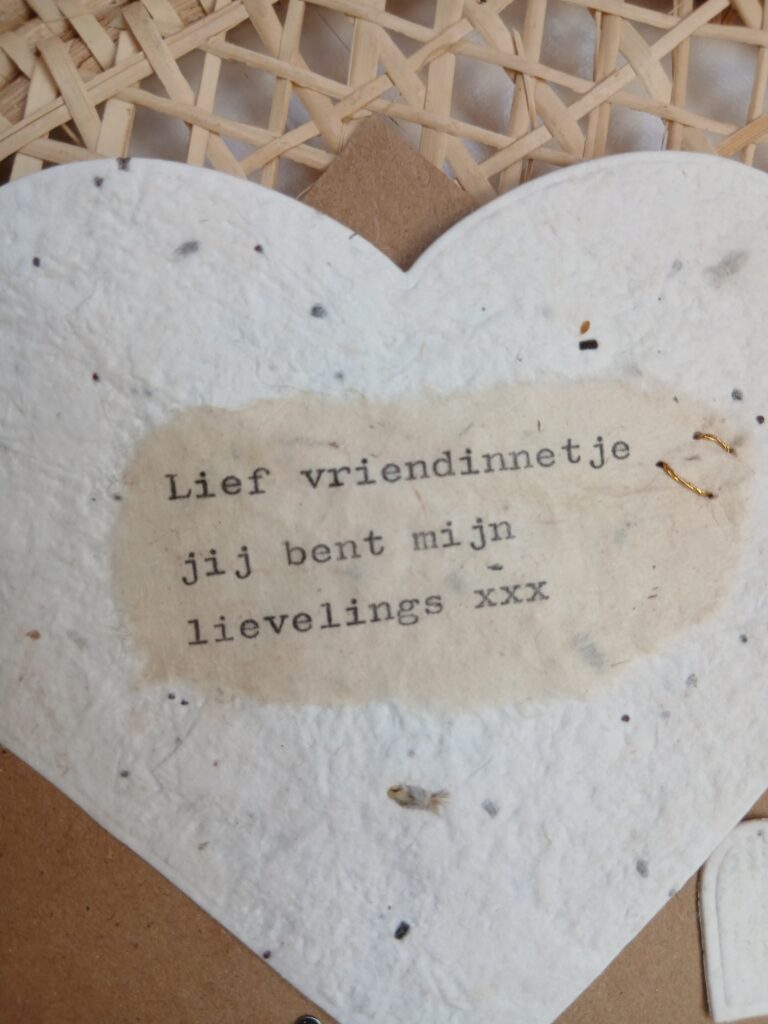 Lief vriendinnetje
jij bent mijn
lievelings xxx